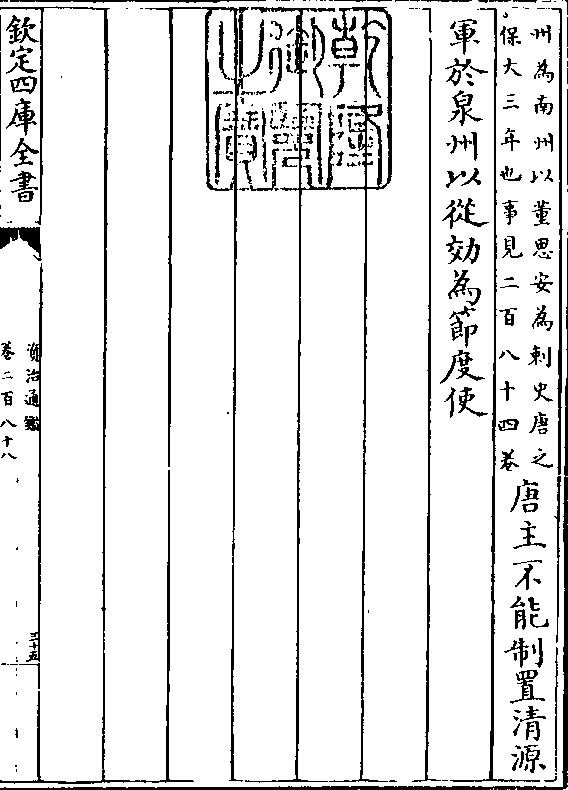 州為南州以董思安為刺史唐之
保大三年也事見二百八十四卷
唐主不能制置清源
軍於泉州以從効為節度使
乾隆御覽之寶
欽定四庫全書
資治通鑑
卷二百八十八
三十五